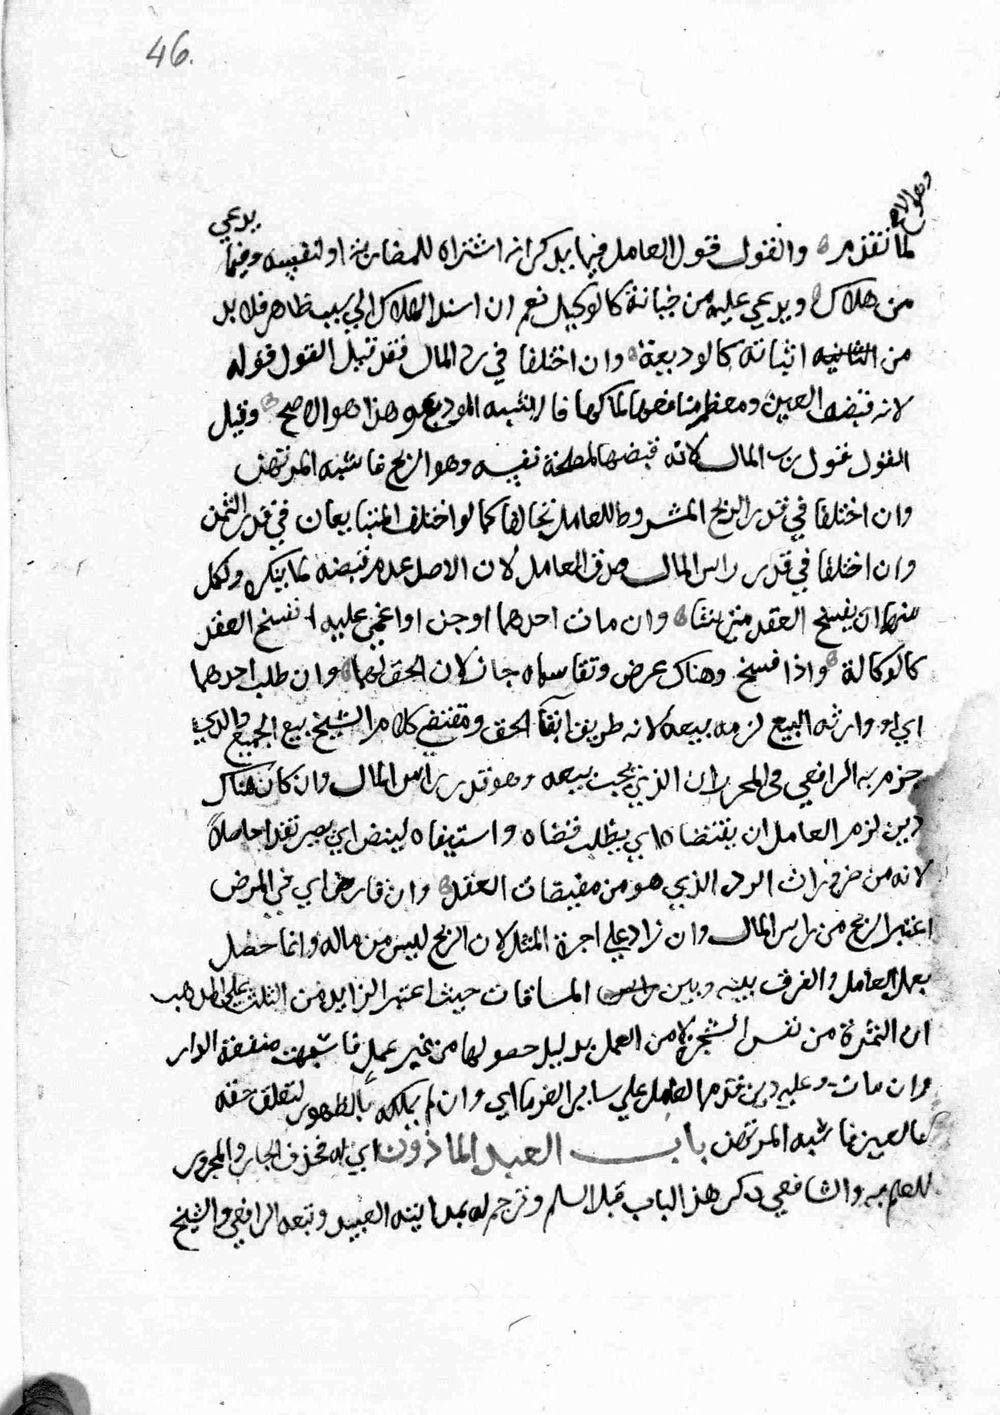 46.
وهو الاصح
يدعي
لما تقدم والقول قول العامل فيما يذكر انه اشتراه للمضاربة او لنفسه وفيما
من هلاك ويدعي عليه من خيانة كالوكيل نعم ان اسند الهلاك الي سبب ظاهر فلا بد
من اثباته كالوديعة وان اختلفا في رد المال فقد قيل القول قوله
لانه قبض العين ومعظم منافعها لمالكها فاشبه المودع وهذا هو الاصح وقيل
القول قول رب المال لانه قبضها لمصلحة نفسه وهو الربح فاشبه المرتهن
وان اختلفا في قدر الربح المشروط للعامل تحالفا كما لو اختلف المتبايعان في قدر الثمن
وان اختلفا في قدر راس المال صدق العامل لان الاصل عدم قبضه لما ينكره ولكل
منهما ان يفسخ العقد متي شا وان مات احدهما او جن او اغمي عليه انفسخ العقد
كالوكالة واذا فسخ وهناك عرض وتقاسماه جاز لان الحق لهما وان طلب احدهما
اي او وارثه البيع لزمه بيعه لانه طريق ابقا الحق ومقتضي كلام الشيخ بيع الجميع والذي
جزم به الرافعي في المحرر ان الذي يجب بيعه وهو قدر راس المال وان كان هناك
دين لزم العامل ان يتقضاه اي يطلب قضاه واستيفاه لينض اي يصير نقدا حاصلا
لانه من ضرورات الرد الذي هو من مقتضيات العقد وان قارض اي في المرض
اعتبر الربح من راس المال وان زاد علي اجرة المثل لان الربح ليس من ماله وانما حصل
بعمل العامل والفرق بينه وبين المساقات حيث اعتبر الزايد من الثلث علي المذهب
ان الثمرة من نفس الشجرة لا من العمل بدليل حصولها من غير عمل فاشبهت منفعة الدار
وان مات وعليه دين قدم العامل علي ساير الغرما اي وان لم يملكه بالظهور لتعلق حقه
بالعين فاشبه المرتهن باب العبد الماذون اي له فحذف الجار والمجرور
للعلم به والشافعي ذكر هذا الباب قبل السلم وترجم له بمداينة العبيد وتبعه الرافعي والشيخ